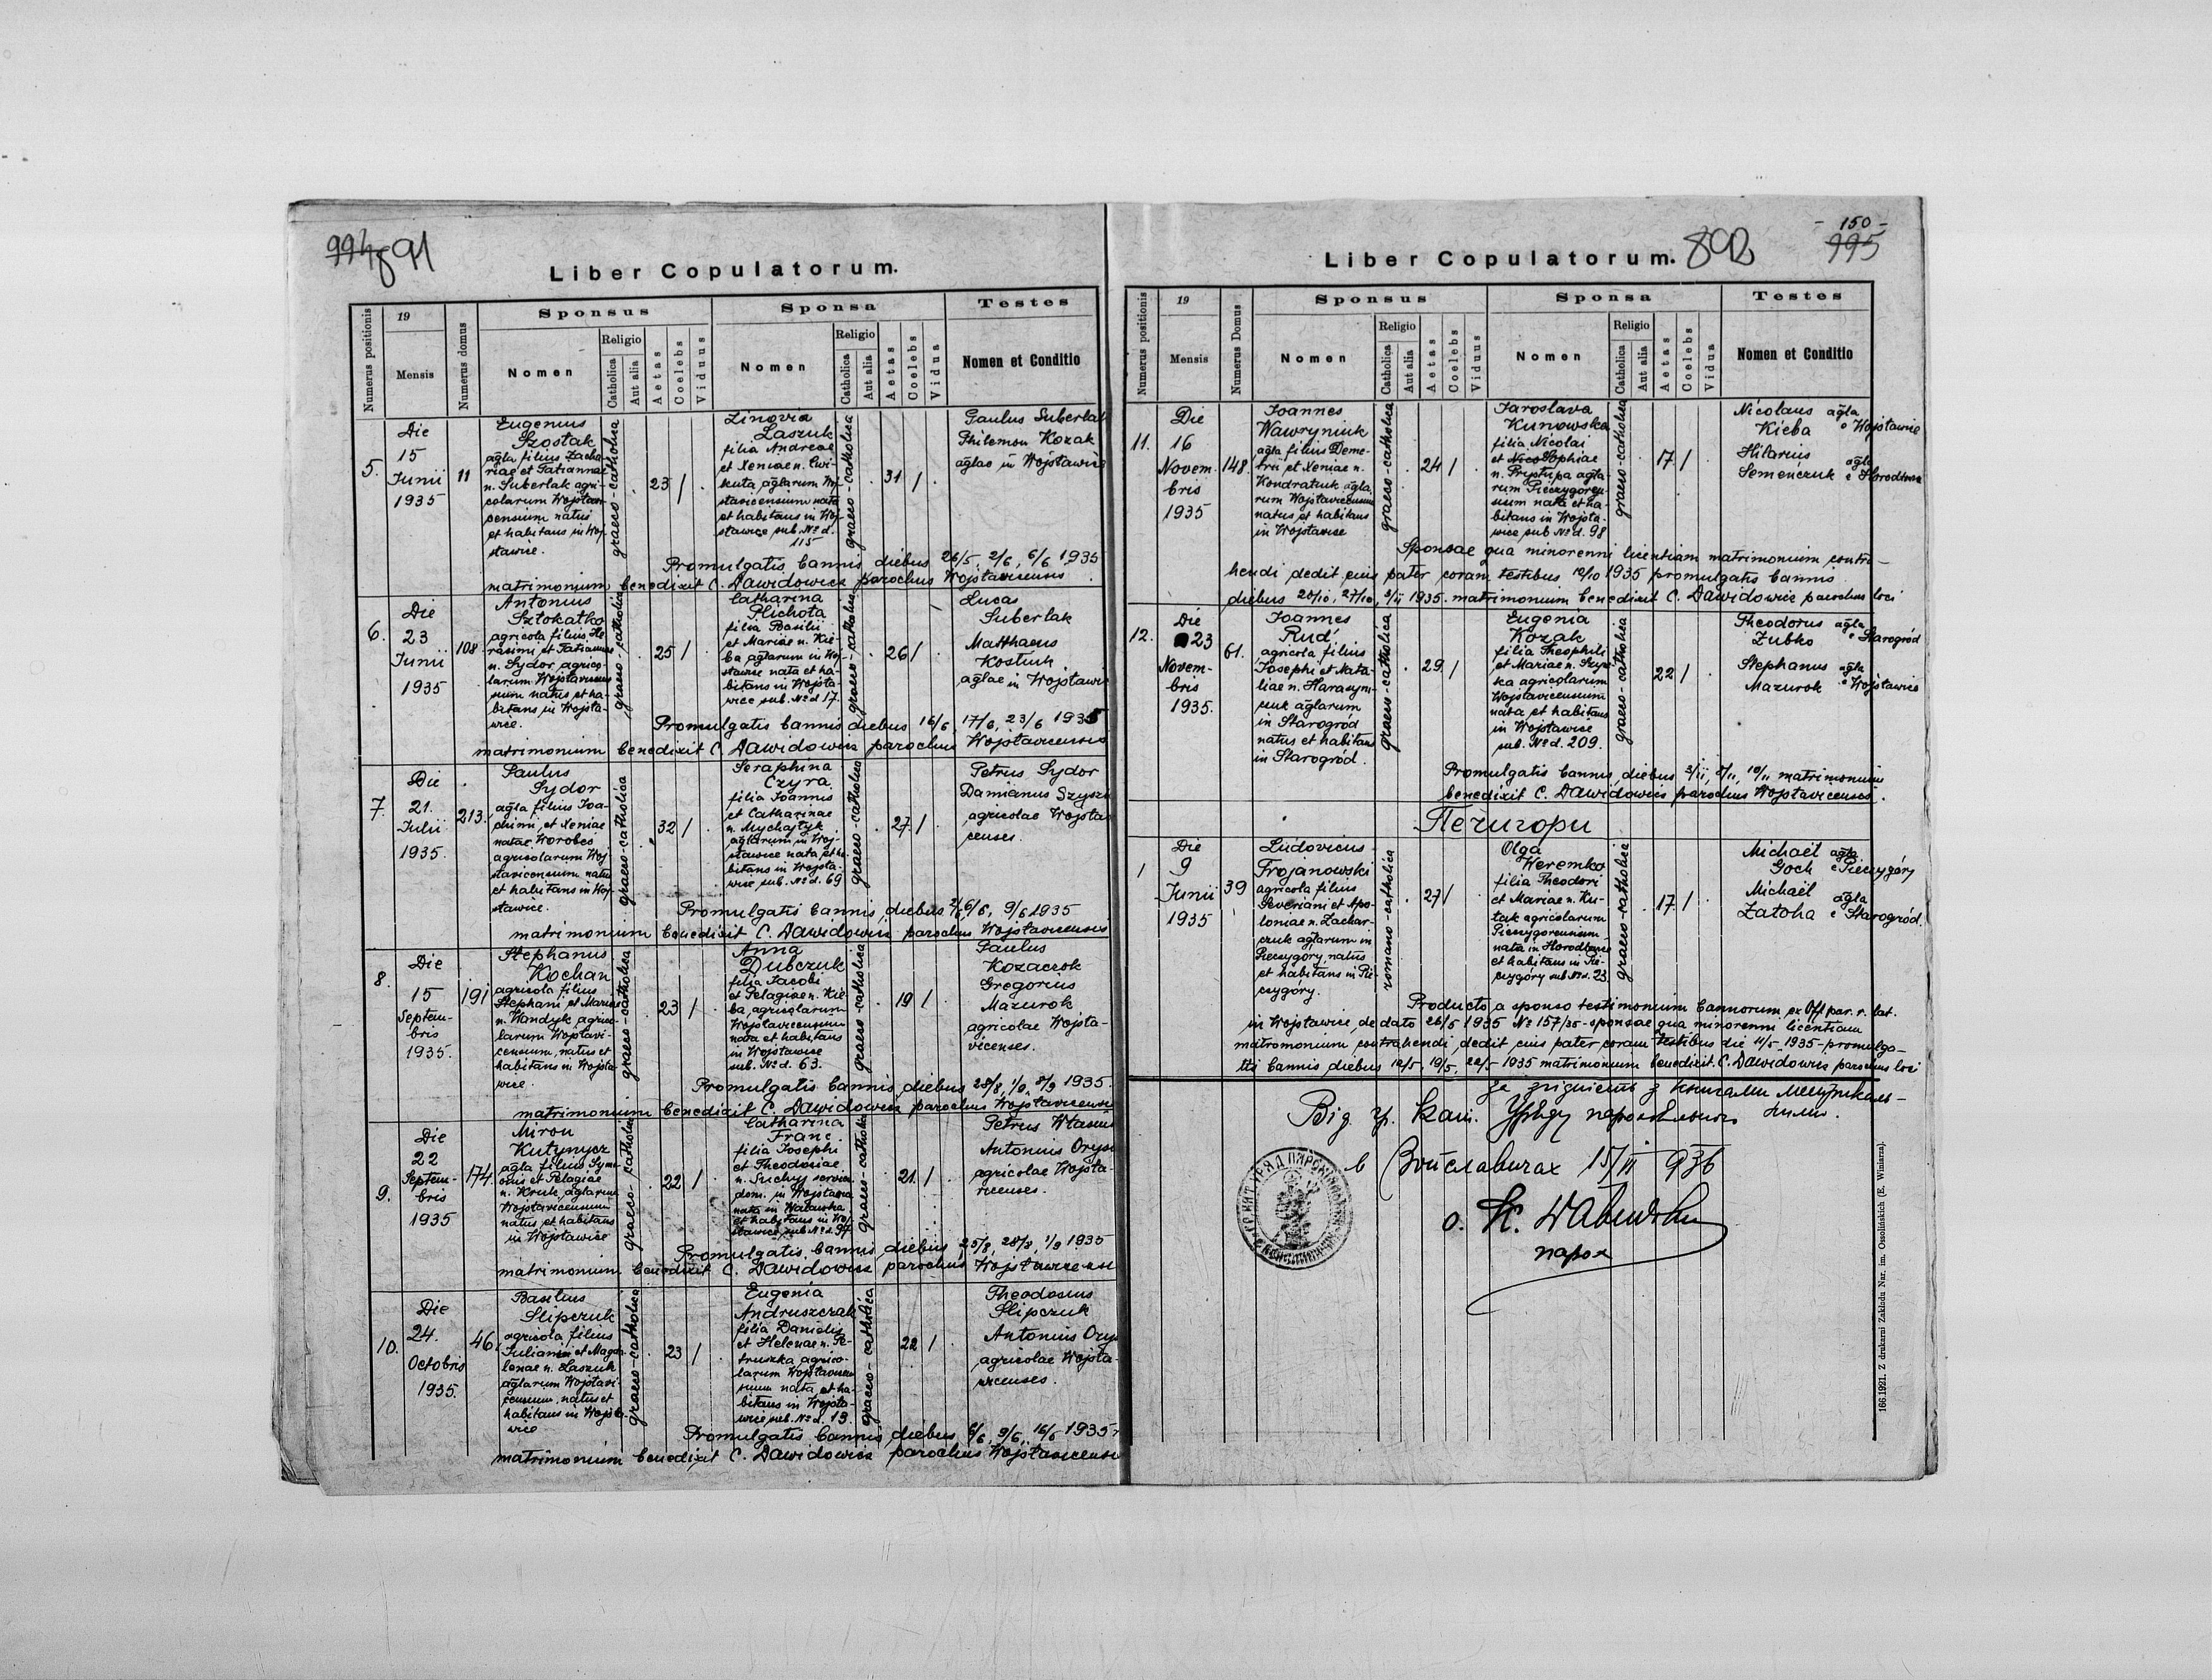 994 891
Liber Copulatorum.
Numerus positionis
19
Mensis
Numerus domus
Sponsus
Nomen
Religio
Catholica
Aut alia
Aetas
Coelebs
Viduus
Sponsa
Nomen
Religio
Catholica
Aut alia
Aetas
Coelebs
Vidua
Testes
Nomen et Conditio
5.
Die
15
Junii
1935
11
Eugenius
Szostak
agla filius Zacha-
riae et Tatiannae
n. Suberlak agri-
colarum Wojsławi-
censium natus
et habitans in Woj-
sławice.
graeco-catholica
23 /
Zinovia
Laszuk
filia Andreae
et Xeniae n. Cwi-
kuta aglarum Woj-
sławicensium nata
et habitans in Woj-
sławice sub. No d.
115
graeco-catholica
31 /
Paulus Suberlak
Philemon Kozak
aglae in Wojsławice
Promulgatis bannis diebus 26/5, 2/6, 6/6 1935
matrimonium benedixit C. Dawidowicz parochus Wojsławicensis
6.
Die
23
Junii
1935
108
Antonius
Sztokatko
agricola filius He-
rasimi et Tatiannae
n. Sydor agrico-
larum Wojsławicen-
sium natus et ha-
bitans in Wojsła-
wice.
graeco-catholica
25 /
Catharina
Plichota
filia Basilii
et Mariae n. Kie-
ba aglarum in Woj-
sławice nata et ha-
bitans in Wojsła-
wice sub. No d 17.
graeco-catholica
26 /
Lucas
Suberlak
Matthaeus
Kostiuk
aglae in Wojsławice
Promulgatis bannis diebus 16/6, 17/6, 23/6 1935
matrimonium benedixit C. Dawidowicz parochus Wojsławicensis
7.
Die
21.
Julii
1935.
213.
Paulus
Sydor
agla filius Joa-
chimi et Xeniae
natae Worobec
agricolarum Woj-
sławicensium natus
et habitans in Woj-
sławice.
graeco-catholica
32 /
Seraphina
Czyra
filia Joannis
et Catharinae
n. Mychajłyk
aglarum in Woj-
sławice nata et ha-
bitans in Wojsła-
wice sub. No d. 69
graeco-catholica
27 /
Petrus Sydor
Damianus
agricolae Wojsławi-
censes.
Promulgatis bannis diebus 2/6, 6/6, 9/6 1935
matrimonium benedixit C. Dawidowicz parochus Wojsławicensis
8.
Die
15
Septem-
bris
1935.
191
Stephanus
Kochan
agricola filius
Stephani et Mariae
n. Wandyk agrico-
larum Wojsławi-
censium, natus et
habitans in Wojsła-
wice.
graeco-catholica
23 /
Anna
Dubczuk
filia Jacobi
et Pelagiae n. Kie-
ba, agricolarum
Wojsławicensium
nata et habitans
in Wojsławice
sub. No d. 63.
graeco-catholica
19 /
Paulus
Kozaczok
Gregorius
Mazurok
agricolae Wojsła-
vicenses.
Promulgatis bannis diebus 28/8, 1/9, 8/9 1935.
matrimonium benedixit C. Dawidowicz parochus Wojsławicensis
9.
Die
22
Septem-
bris
1935
174.
Miron
Kutynycz
agla filius Syme-
onis et Pelagiae
n. Kruk, aglarum
Wojsławicensium
natus et habitans
in Wojsławice
graeco-catholica
22 /
Catharina
Franc.
filia Josephi
et Theodosiae
n. Suchyj
dom. in Wojsławice
nata in
et habitans in Woj-
sławice sub No d. 97
graeco-catholica
21. /
Petrus
Antonius Orys
agricolae Wojsła-
vicenses.
Promulgatis bannis diebus 25/8, 28/8, 1/9 1935
matrimonium benedixit C. Dawidowicz parochus Wojsławicensis
10.
Die
24.
Octobris
1935.
46.
Basilius
Slipczuk
agricola filius
Juliani et Magda-
lenae n. Laszuk
aglarum Wojsławi-
censium, natus et
habitans in Wojsła-
wice
graeco-catholica
23 /
Eugenia
Andruszczak
filia Danielis
et Helenae n. Pe-
truszka agrico-
larum Wojsławicen-
sium nata et ha-
bitans in Wojsła-
wice sub. No d. 13.
graeco-catholica
22 /
Theodosius
Slipczuk
Antonius Orys
agricolae Wojsła-
wicenses.
Promulgatis bannis diebus 6/6, 9/6, 16/6 1935
matrimonium benedixit C. Dawidowicz parochus Wojsławicensis
- 150 -
995
Liber Copulatorum. 892
Numerus positionis
19
Mensis
Numerus Domus
Sponsus
Nomen
Religio
Catholica
Aut alia
Aetas
Coelebs
Viduus
Sponsa
Nomen
Religio
Catholica
Aut alia
Aetas
Coelebs
Vidua
Testes
Nomen et Conditio
11.
Die
16
Novem-
bris
1935
148.
Joannes
Wawryniuk
agla filius Deme-
trii et Xeniae n.
Kondratiuk agla-
rum Wojsławicensium
natus et habitans
in Wojsławice
graeco-catholica
24 /
Jaroslava
Kunowska
filia Nicolai
et Sophiae
n. Prystupa agla-
rum Pieczygoren-
sium nata et ha-
bitans in Wojsła-
wice sub No d. 98
graeco-catholica
17 /
Nicolaus agla
Kieba e Wojsławice
Hilarius
Semeńczuk agla e Horodłowice
Sponsae qua minorenni licentiam matrimonium contra-
hendi dedit eius pater coram testibus 12/10 1935 promulgatis bannis
diebus 20/10, 27/10, 3/11 1935. matrimonium benedixit C. Dawidowicz parochus loci
12.
Die
23
Novem-
bris
1935.
61.
Joannes
Rud'
agricola filius
Josephi et Nata-
liae n. Harasym-
czuk aglarum
in Starogród
natus et habitans
in Starogród.
graeco-catholica
29 /
Eugenia
Kozak
filia Theophili
et Mariae n.
ka agricolarum
Wojsławicensium
nata et habitans
in Wojsławice
sub. No d. 209.
graeco-catholica
22 /
Theodorus agla
Zubko e Starogród
Stephanus agla
Mazurok e Wojsławice
Promulgatis bannis diebus 3/11, 8/11, 10/11 matrimonium
benedixit C. Dawidowicz parochus Wojsławicensis.
Печигори
1
Die
9
Junii
1935
39
Ludovicus
Trojanowski
agricola filius
Severiani et Apo-
loniae n. Zachar-
czuk aglarum in
Pieczygóry, natus
et habitans in Pie-
czygóry.
romano-catholica
27 /
Olga
Weremko
filia Theodori
et Mariae n. Ku-
tak agricolarum
Pieczygorensium
nata in Horodłowice
et habitans in Pie-
czygóry sub No d. 23.
graeco-catholica
17. /
Michaël agla
Goch e Pieczygóry
Michaël agla
Zatoha e Starogród.
Producto a sponso testimonium bannorum ex Off. par. r. lat.
in Wojsławice, de dato 26/5 1935 No 157/35 - sponsae qua minorenni licentiam
matromonium contrahendi dedit eius pater coram testibus die 11/5 1935 - promulga-
tis bannis diebus 12/5, 19/5, 22/5 1935 matrimonium benedixit. C. Dawidowicz parochus loci
За згідність з книгами метрикаль-
ними.
Від гр. кат. Уряду парохіяльного
в Войславичах 15/II 936
о. К.
парох
166.1921. Z drukarni Zakładu Nar. im. Ossolińskich (E. Winiarza).